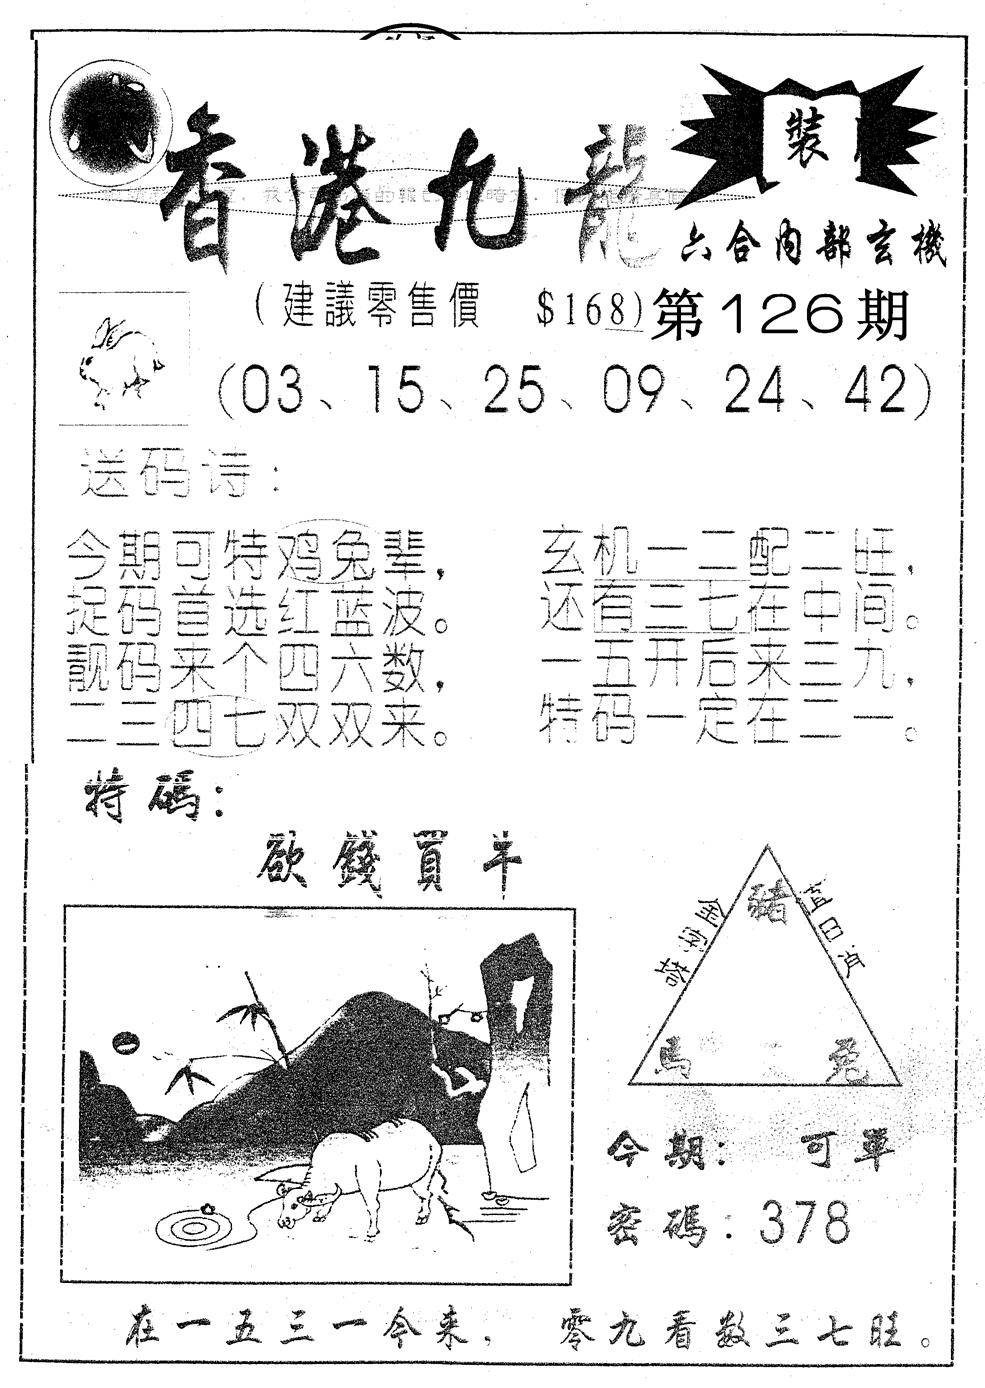 香港九龍
裝
六合內部玄機
(建議零售價 $168) 第126期
(03、15、25、09、24、42)
送码诗:
今期可特鸡兔辈,
捉码首选红蓝波。
靓码来个四六数,
二三四七双双来。
玄机一二配二旺,
还有三七在中间。
一五开后来三九,
特码一定在二一。
特碼:
欲錢買牛
金字塔
豬
馬
兔
今期: 可單
密碼:378
在一五三一今来, 零九看数三七旺。